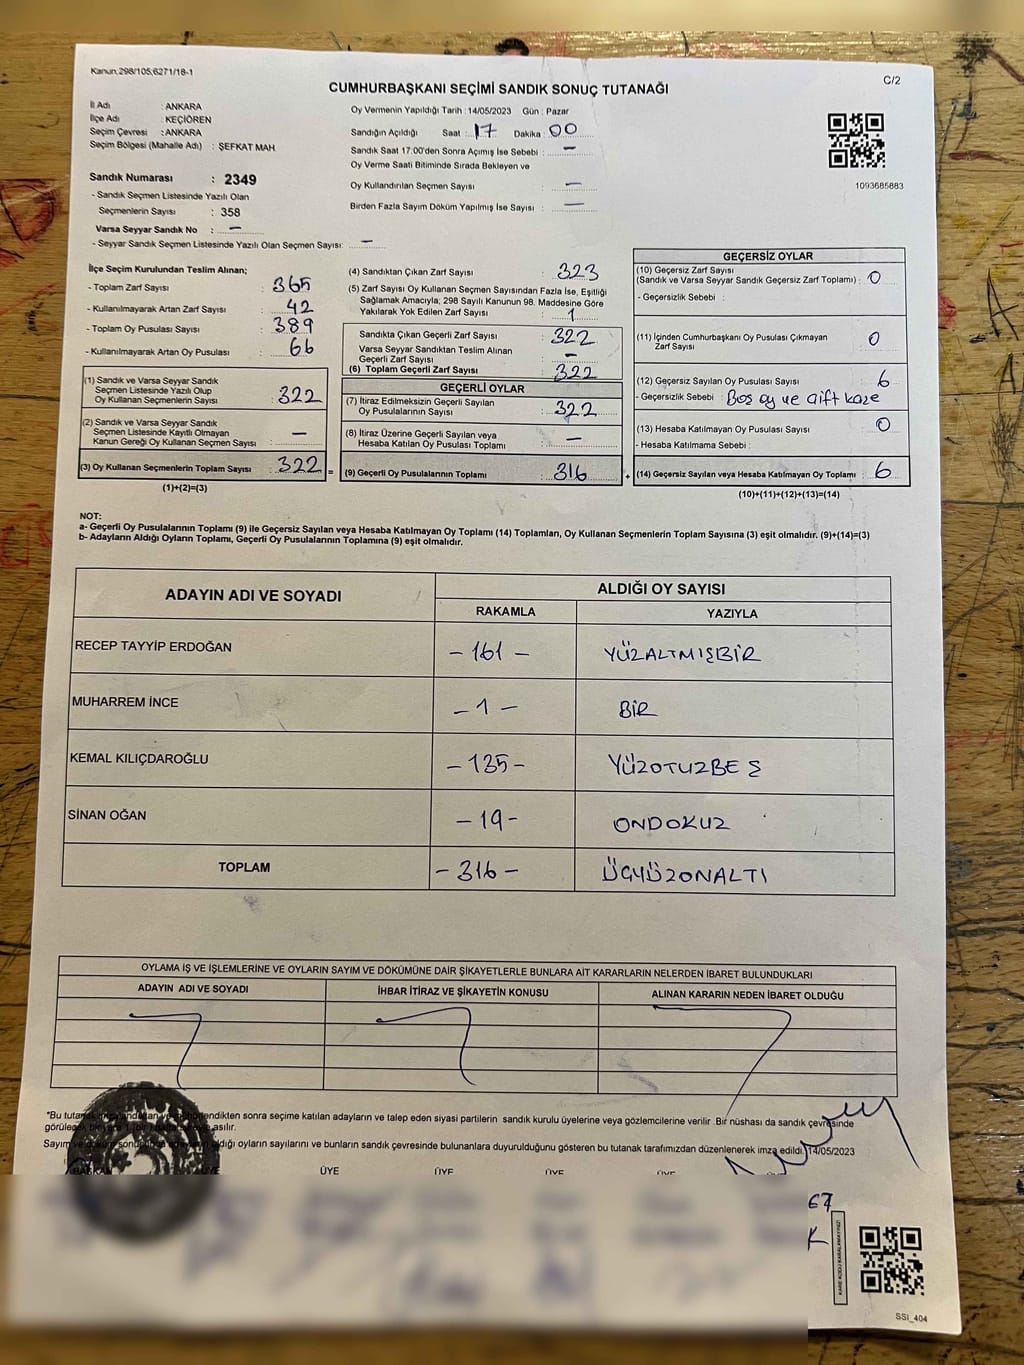 Kanun:298/105;6271/18-1
C/2
CUMHURBAŞKANI SEÇİMİ SANDIK SONUÇ TUTANAĞI
İl Adı : ANKARA
İlçe Adı : KEÇİÖREN
Seçim Çevresi : ANKARA
Seçim Bölgesi (Mahalle Adı) : ŞEFKAT MAH.
Sandık Numarası : 2349
- Sandık Seçmen Listesinde Yazılı Olan
Seçmenlerin Sayısı : 358
Varsa Seyyar Sandık No : —
- Seyyar Sandık Seçmen Listesinde Yazılı Olan Seçmen Sayısı: —
Oy Vermenin Yapıldığı Tarih : 14/05/2023 Gün : Pazar
Sandığın Açıldığı Saat : 17 Dakika : 00
Sandık Saat 17:00'den Sonra Açımış İse Sebebi : —
Oy Verme Saati Bitiminde Sırada Bekleyen ve
Oy Kullandırılan Seçmen Sayısı : —
Birden Fazla Sayım Döküm Yapılmış İse Sayısı : —
1093685883
İlçe Seçim Kurulundan Teslim Alınan;
- Toplam Zarf Sayısı : 365
- Kullanılmayarak Artan Zarf Sayısı : 42
- Toplam Oy Pusulası Sayısı : 389
- Kullanılmayarak Artan Oy Pusulası : 66
(1) Sandık ve Varsa Seyyar Sandık
Seçmen Listesinde Yazılı Olup
Oy Kullanan Seçmenlerin Sayısı : 322
(2) Sandık ve Varsa Seyyar Sandık
Seçmen Listesinde Kayıtlı Olmayan
Kanun Gereği Oy Kullanan Seçmen Sayısı : —
(3) Oy Kullanan Seçmenlerin Toplam Sayısı : 322 =
(1)+(2)=(3)
(4) Sandıktan Çıkan Zarf Sayısı : 323
(5) Zarf Sayısı Oy Kullanan Seçmen Sayısından Fazla İse, Eşitliği
Sağlamak Amacıyla; 298 Sayılı Kanunun 98. Maddesine Göre
Yakılarak Yok Edilen Zarf Sayısı : 1
Sandıkta Çıkan Geçerli Zarf Sayısı : 322
Varsa Seyyar Sandıktan Teslim Alınan
Geçerli Zarf Sayısı : —
(6) Toplam Geçerli Zarf Sayısı : 322
GEÇERLİ OYLAR
(7) İtiraz Edilmeksizin Geçerli Sayılan
Oy Pusulalarının Sayısı : 322
(8) İtiraz Üzerine Geçerli Sayılan veya
Hesaba Katılan Oy Pusulası Toplamı : —
(9) Geçerli Oy Pusulalarının Toplamı : 316 +
GEÇERSİZ OYLAR
(10) Geçersiz Zarf Sayısı
(Sandık ve Varsa Seyyar Sandık Geçersiz Zarf Toplamı) : 0
- Geçersizlik Sebebi :
(11) İçinden Cumhurbaşkanı Oy Pusulası Çıkmayan
Zarf Sayısı : 0
(12) Geçersiz Sayılan Oy Pusulası Sayısı : 6
- Geçersizlik Sebebi : Boş oy ve Çift kaşe
(13) Hesaba Katılmayan Oy Pusulası Sayısı : 0
- Hesaba Katılmama Sebebi :
(14) Geçersiz Sayılan veya Hesaba Katılmayan Oy Toplamı : 6
(10)+(11)+(12)+(13)=(14)
NOT:
a- Geçerli Oy Pusulalarının Toplamı (9) ile Geçersiz Sayılan veya Hesaba Katılmayan Oy Toplamı (14) Toplamları, Oy Kullanan Seçmenlerin Toplam Sayısına (3) eşit olmalıdır. (9)+(14)=(3)
b- Adayların Aldığı Oyların Toplamı, Geçerli Oy Pusulalarının Toplamına (9) eşit olmalıdır.
ADAYIN ADI VE SOYADI
ALDIĞI OY SAYISI
RAKAMLA YAZIYLA
RECEP TAYYİP ERDOĞAN - 161 - YÜZALTMIŞBİR
MUHARREM İNCE - 1 - BİR
KEMAL KILIÇDAROĞLU - 135 - YÜZOTUZBEŞ
SİNAN OĞAN - 19 - ONDOKUZ
TOPLAM - 316 - ÜÇYÜZONALTI
OYLAMA İŞ VE İŞLEMLERİNE VE OYLARIN SAYIM VE DÖKÜMÜNE DAİR ŞİKAYETLERLE BUNLARA AİT KARARLARIN NELERDEN İBARET BULUNDUKLARI
ADAYIN ADI VE SOYADI İHBAR İTİRAZ VE ŞİKAYETİN KONUSU ALINAN KARARIN NEDEN İBARET OLDUĞU
*Bu sonra seçime katılan adayların ve talep eden siyasi partilerin sandık kurulu üyelerine veya gözlemcilerine verilir. Bir nüshası da sandık çevresinde
görülecek asılır.
Sayım ve aldığı oyların sayılarını ve bunların sandık çevresinde bulunanlara duyurulduğunu gösteren bu tutanak tarafımızdan düzenlenerek imza edildi. 14/05/2023
BAŞKAN ÜYE ÜYE ÜYE ÜYE ÜYE
67
K
SSI_404